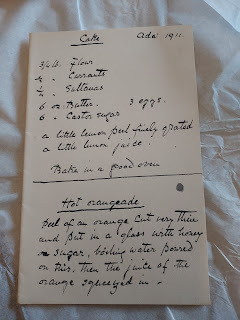 Cake Ada 1911.
3/4 lb. Flour
1/4 " Currants
1/4 " Sultanas
6 oz. Butter. 3 eggs.
6 " Castor sugar
a little lemon peel finely grated
a little lemon juice.
Bake in a good oven
Hot orangeade
Peel of an orange cut very thin
and put in a glass with honey
or sugar, boiling water poured
on this, then the juice of the
orange squeezed in -